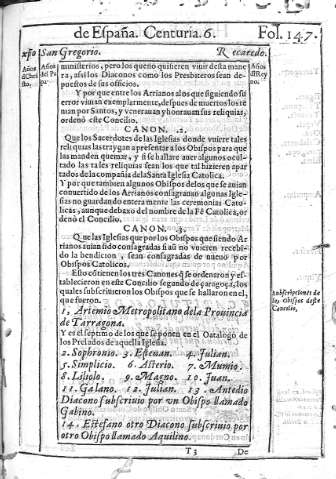 de España. Centuria. 6. Fol. 147.
San Gregorio. Recaredo.
Años del Pa
Años del Rey
ministerios, pero los que no quisieren viuir desta mane
ra, assi los Diaconos como los Presbiteros sean de-
puestos de sus officios.
Y por que entre los Arrianos a los que siguiendo su
error viuian exemplarmente, despues de muertos los te
nian por Santos, y venerauan y honrauan sus reliquias,
ordenó este Concilio.
CANON. 2.
Que los Sacerdotes de las Iglesias donde vuiere tales
reliquias las traygan a presentar a los Obispos para que
las manden quemar, y si se hallare auer algunos ocul-
tado las tales reliquias sean los que tal hizieren apar-
tados de la compañia de la Santa Iglesia Catolica.
Y por que tambien algunos Obispos delos que se auian
conuertido de los Arrianos consagrauan algunas Igle-
sias no guardando enteramente las ceremonias Catoli-
cas, aunque debaxo del nombre de la Fè Catolica, or
denó el Concilio.
CANON. 3.
Que las Iglesias que por los Obispos que siendo Ar
rianos auian sido consagradas si aũ no vuieren recebi-
do la bendicion, sean consagradas de nueuo por
Obispos Catolicos.
Esto cõtienen los tres Canones q̃ se ordenaron y es-
tablecieron en este Concilio segundo de çaragoça, los
quales subscriuieron los Obispos que se hallaron en el,
que fueron.
subscripciones de
los Obispos deste
Concilio.
1, Artemio Metropolitano de la Prouincia
de Tarragona.
Y es el septimo de los que se ponen en el Catalogo de
los Prelados de aquella Iglesia.
2. Sophronio. 3. Esteuan. 4. Julian.
5. Simplicio. 6. Asterio. 7. Mumio.
8. Liliolo. 9. Magno. 10. Juan.
11. Galano. 12. Julian. 13. Antedio
Diacono subscriuio por vn Obispo llamado
Gabino.
14. Estefano otro Diacono subscriuio por
otro Obispo llamado Aquilino.
T 3 De